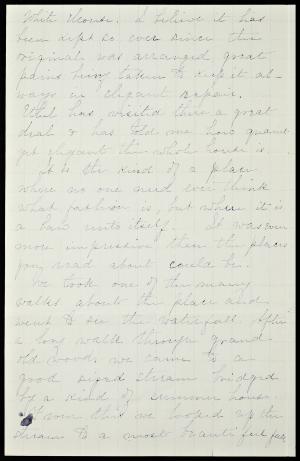 White House. I believe it has
been kept so ever since the
original was arranged, great
pains being taken to keep it al-
ways in elegant repair.
Ethel has visited there a great
deal & has told me how grand
yet elegant the whole house is.
It is the kind of a place
where no one need ever think
what fashion is, but where it is
a law unto itself. It was even
more impressive than the places
you read about could be.
We took one of the many
walks about the place and
went to see the waterfall. After
a long walk through grand
old woods, we came to a
good sized stream bridged
by a kind of summer house.
From this we looked up the
stream to a most beautiful fall